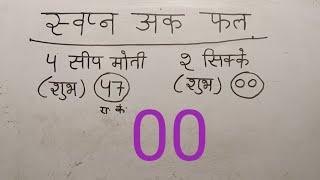 स्वप्न अंक फल
५ सीप मोती
(शुभ) 47
रा. कं.
२ सिक्के
(शुभ) ००
00